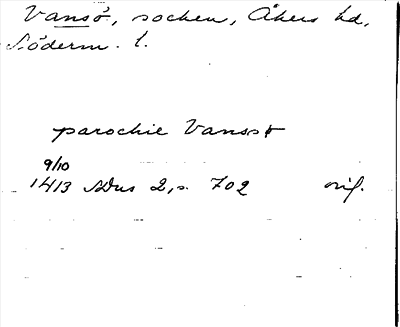 Vansö, socken, Åkers hd,
Söderm. l.
parochie Vansø
9/10
1413 SDns 2, s. 702 orig.